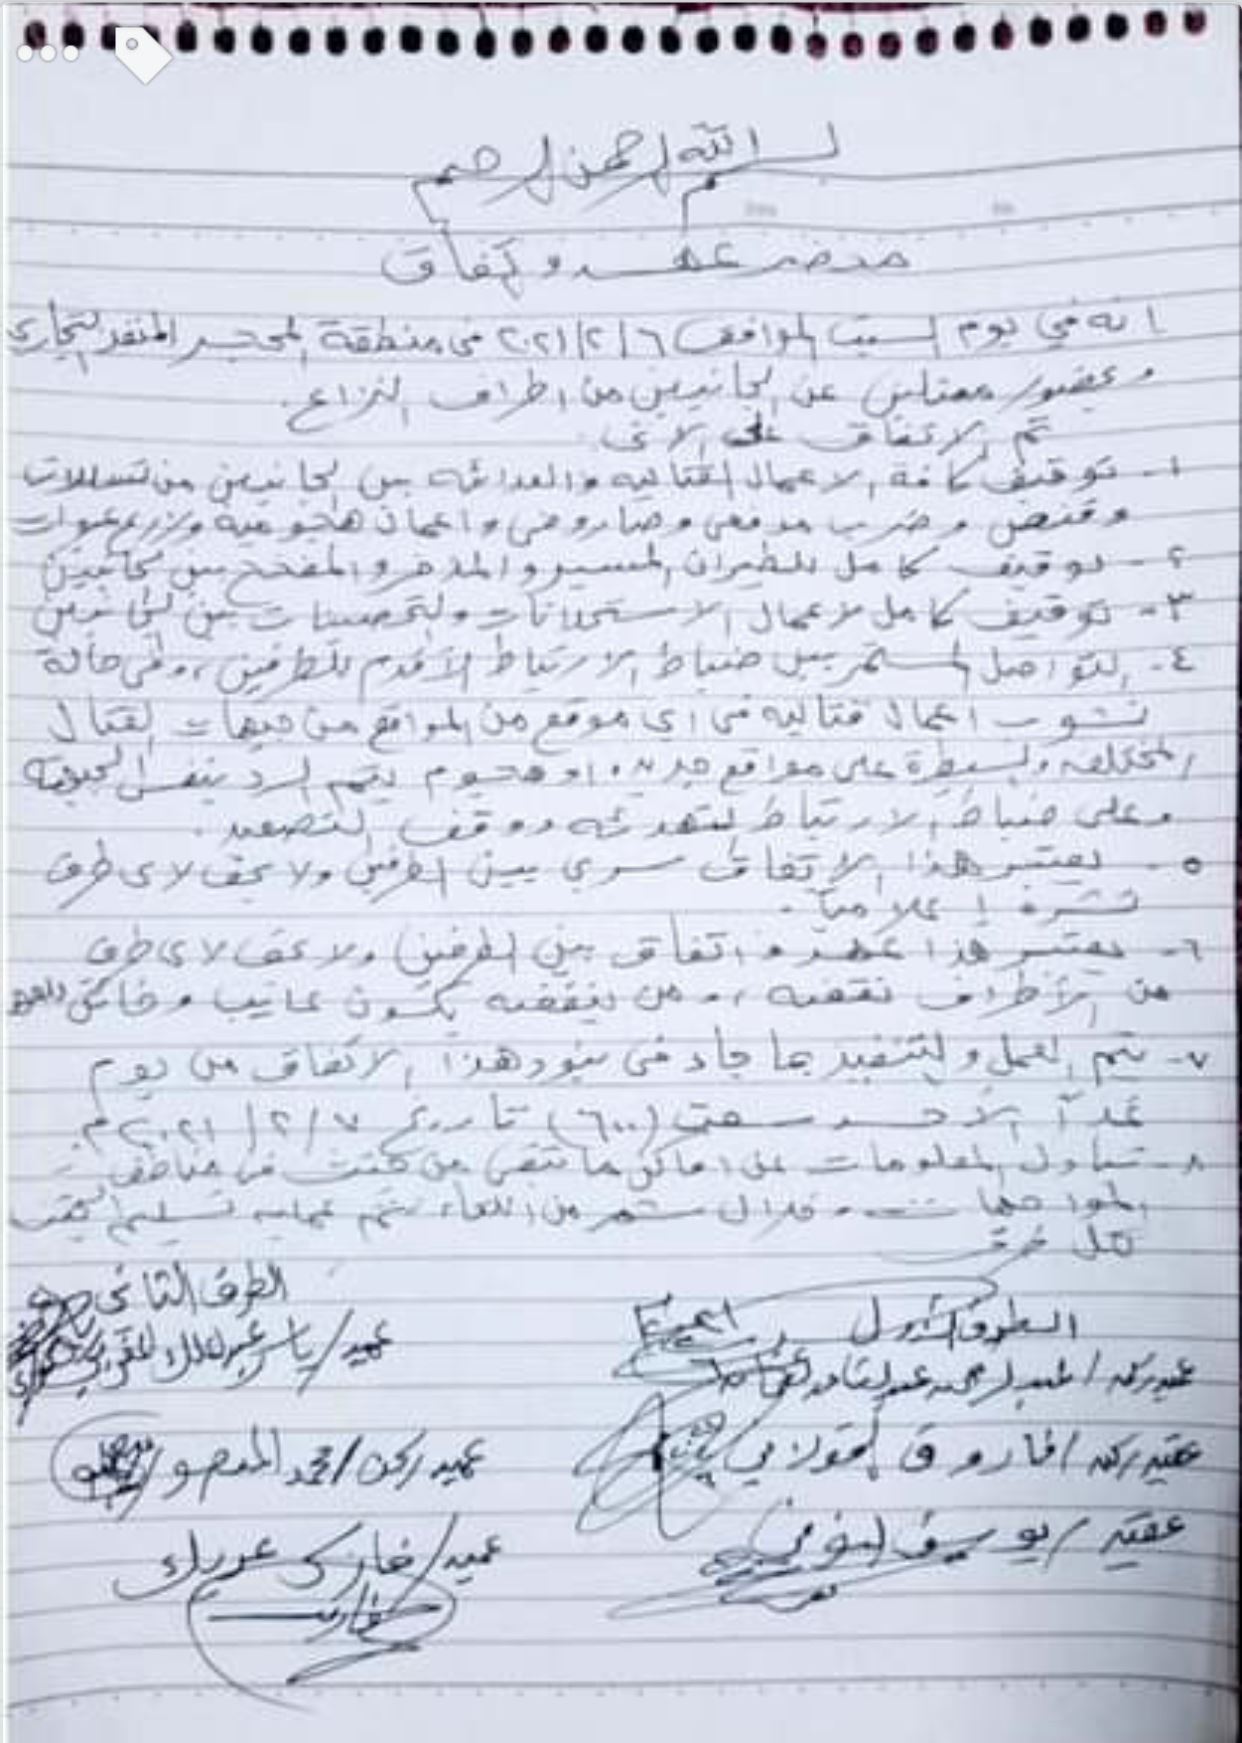 بسم الله الرحمن الرحيم
محضر عهد واتفاق
انه في يوم السبت الموافق ٢٠٢١/٢/٦ في منطقة المحجر المنفذ التجاري
وبحضور ممثلين عن الجانبين من اطراف النزاع.
تم الاتفاق على الاتي:
١- توقيف كافة الاعمال القتاليه والعدائيه بين الجانبين من تسللات
وقنص وضرب مدفعي وصاروخي واعمال هجوميه وزرع عبوات
٢- توقيف كامل للطيران المسير والمذخر والمفخخ بين الجانبين
٣- توقيف كامل لاعمال الاستحداثات والتحصينات بين الجانبين
٤- التواصل المستمر بين ضباط الارتباط الأقدم للطرفين، وفي حالة
نشوب اعمال قتاليه في اي موقع من المواقع من جبهات القتال
المختلفه والسيطرة على مواقع جديده او هجوم يتم الرد بنفس الجبهه
وعلى ضباط الارتباط التهدئه ووقف التصعيد.
٥- يعتبر هذا الاتفاق سري بين الطرفين ولا يحق لاي طرف
نشره إعلامياً.
٦- يعتبر هذا عهد واتفاق بين الطرفين ولا يحق لاي طرف
من الأطراف نقضه، ومن ينقضه يكون عايب وخائن
٧- يتم العمل والتنفيذ بما جاء في بنود هذا الاتفاق من يوم
غداً الأحد سعت (٦٠٠) تاريخ ٢٠٢١/٢/٧م.
٨- تبادل المعلومات عن اماكن ما تبقى من جثث في مناطق
المواجهات وخلال شهر من اللقاء يتم عمليه تسليم الجثث
لكل طرف
الطرف الأول
الطرف الثاني
عميد ركن/ عبدالرحمن
عميد/ ياسر عبدالملك
عقيد ركن/ فاروق الخولاني
عميد ركن/ محمد المنصور
عقيد/ يوسف
عميد/ غازي